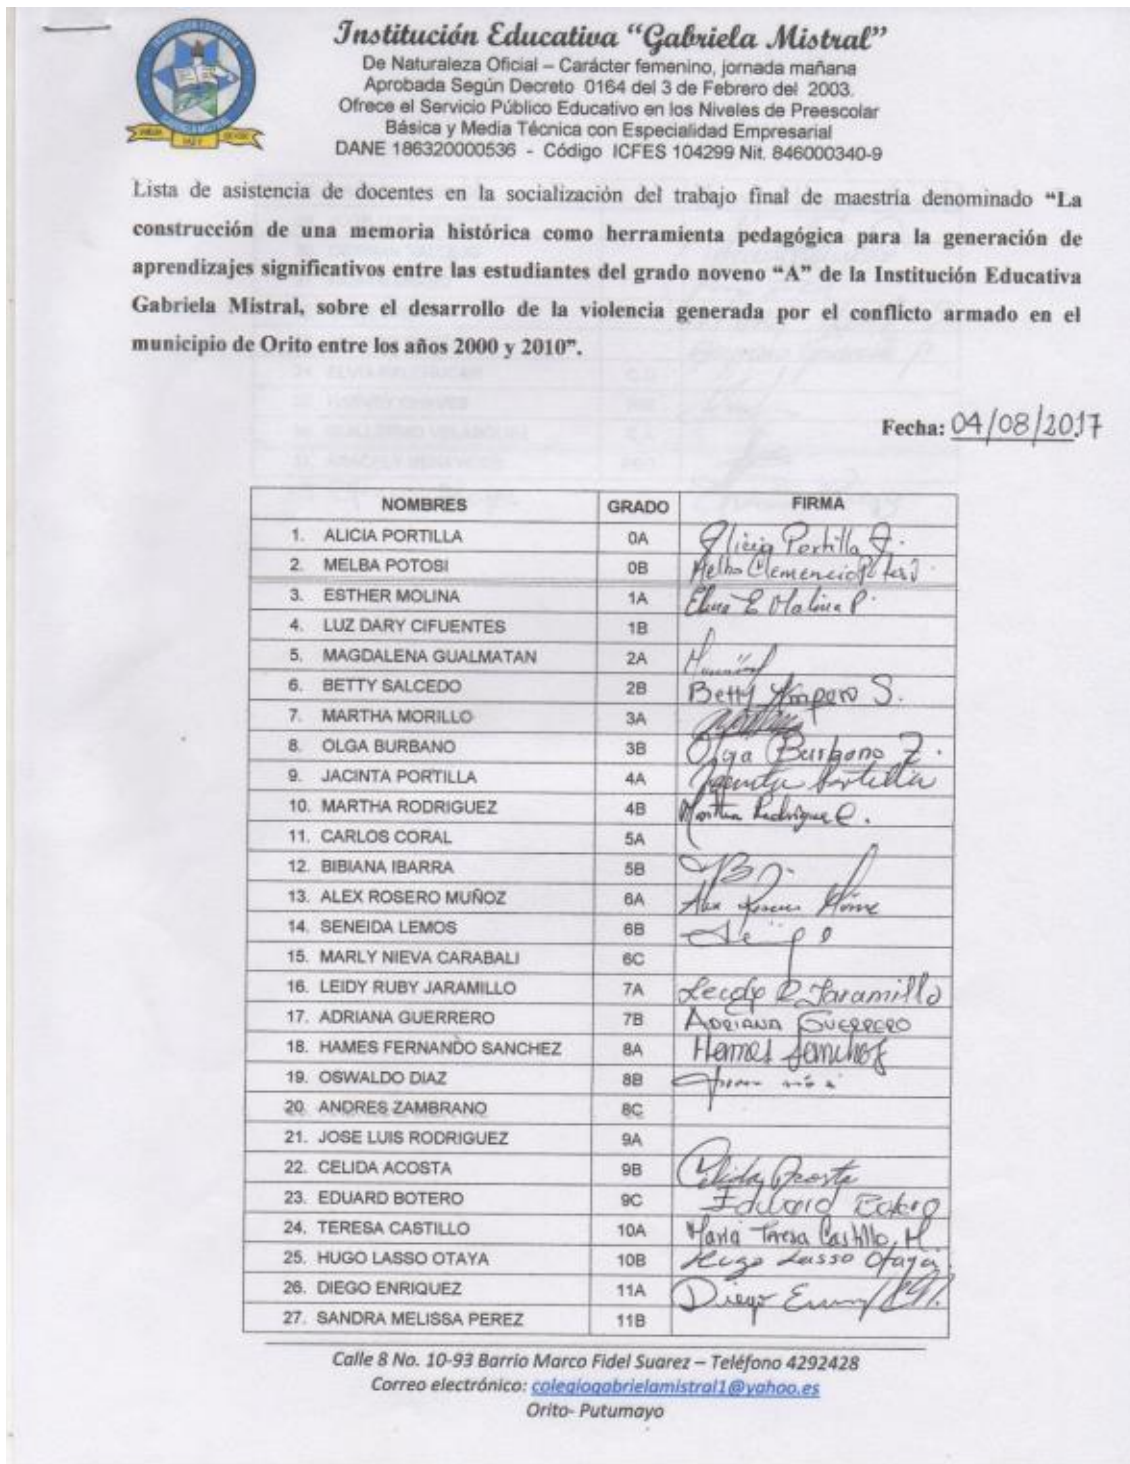 Institución Educativa “Gabriela Mistral”
De Naturaleza Oficial – Carácter femenino, jornada mañana
Aprobada Según Decreto 0164 del 3 de Febrero del 2003.
Ofrece el Servicio Público Educativo en los Niveles de Preescolar
Básica y Media Técnica con Especialidad Empresarial
DANE 186320000536 - Código ICFES 104299 Nit. 846000340-9
Lista de asistencia de docentes en la socialización del trabajo final de maestría denominado “La
construcción de una memoria histórica como herramienta pedagógica para la generación de
aprendizajes significativos entre las estudiantes del grado noveno “A” de la Institución Educativa
Gabriela Mistral, sobre el desarrollo de la violencia generada por el conflicto armado en el
municipio de Orito entre los años 2000 y 2010”.
Fecha: 04/08/2017
NOMBRES GRADO FIRMA
1. ALICIA PORTILLA 0A Alicia Portilla
2. MELBA POTOSI 0B Melba Clemencia
3. ESTHER MOLINA 1A E Molina P.
4. LUZ DARY CIFUENTES 1B
5. MAGDALENA GUALMATAN 2A
6. BETTY SALCEDO 2B Betty Amparo S.
7. MARTHA MORILLO 3A
8. OLGA BURBANO 3B Olga Burbano Z.
9. JACINTA PORTILLA 4A Jacinta Portilla
10. MARTHA RODRIGUEZ 4B Martha Rodrigue
11. CARLOS CORAL 5A
12. BIBIANA IBARRA 5B
13. ALEX ROSERO MUÑOZ 6A Alex
14. SENEIDA LEMOS 6B
15. MARLY NIEVA CARABALI 6C
16. LEIDY RUBY JARAMILLO 7A Leidy R Jaramillo
17. ADRIANA GUERRERO 7B ADRIANA GUERRERO
18. HAMES FERNANDO SANCHEZ 8A
19. OSWALDO DIAZ 8B
20. ANDRES ZAMBRANO 8C
21. JOSE LUIS RODRIGUEZ 9A
22. CELIDA ACOSTA 9B Celida Acosta
23. EDUARD BOTERO 9C Eduard Botero
24. TERESA CASTILLO 10A Maria Teresa Castillo M
25. HUGO LASSO OTAYA 10B Hugo Lasso Otaya
26. DIEGO ENRIQUEZ 11A Diego
27. SANDRA MELISSA PEREZ 11B
Calle 8 No. 10-93 Barrio Marco Fidel Suarez – Teléfono 4292428
Correo electrónico: colegiogabrielamistral1@yahoo.es
Orito- Putumayo